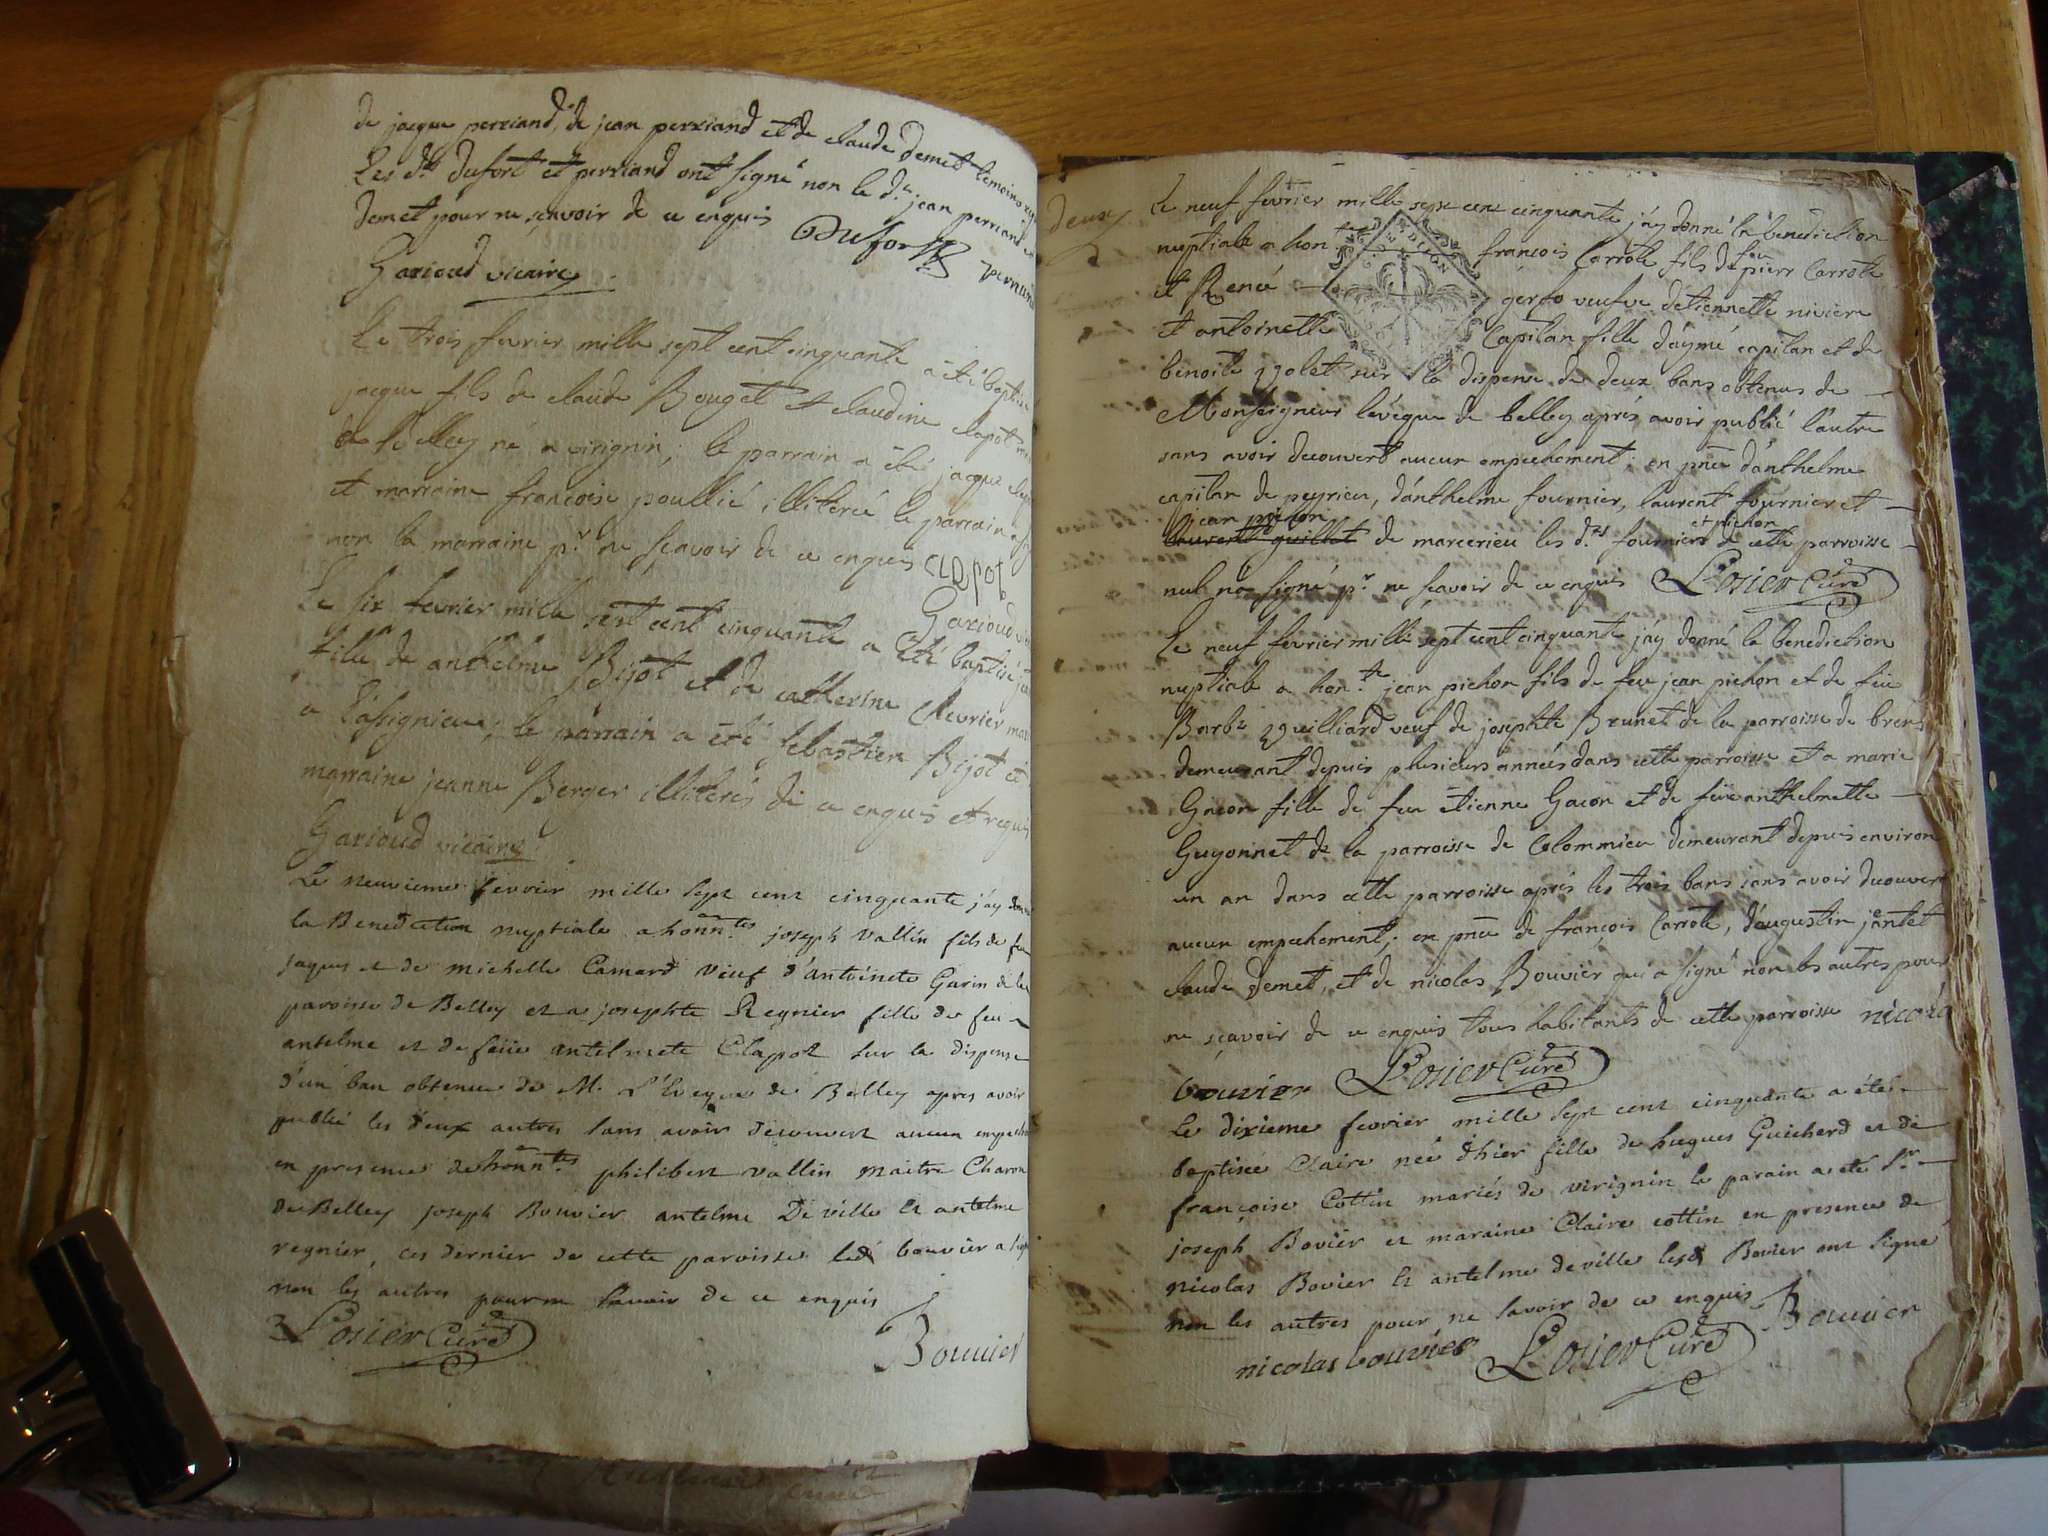 de jacque perriand, de jean perriand et de claude demet témoins
Les dts dufort et perriand ont signé non le dt jean perriand et
demet pour ne sçavoir de ce enquis Dufort
Garioud vicaire
Le trois fevrier mille sept cent cinquante a été baptisé
jacque fils de claude Bouget et claudine clapot
de Belley né a virignin; le parrain a été jacque
et marraine francoise poullié illiteré le parrain a
non la marraine pr ne scavoir de ce enquis clapot
Garioud
Le six fevrier mille sept cent cinquante a été baptisé
fille de anthelme Bijot et de catherine Chevrier
a Lassignieu; le parrain a été sebastien Bijot et
marraine jeanne Berger illiterés de ce enquis et requis
Garioud vicaire
Le neuvieme fevrier mille sept cent cinquante j'ay donné
la Benediction nuptiale a honntes joseph vallin fils de feu
jaques et de michelle Camard veuf d'antoinete Garin de la
paroisse de Belley et a josephte Regnier fille de feu
antelme et de feüe antelmete Clapot sur la dispense
d'un ban obtenue de M. L'Eveque de Belley apres avoir
publié les deux autres sans avoir decouvert aucun
en presence de honntes philibert vallin maitre Charon
de Belley joseph Bouvier antelme Deville et antelme
regnier, ces dernier de cette paroisse led bouvier a
non les autres pour ne savoir de ce enquis
Losier Curé Bouvier
deux
Le neuf fevrier mille sept cent cinquante j'ay donné la benediction
nuptiale a hon. francois Carrote fils de feu pierre Carrote
et René gerfo veufve d'etiennette niviere
et antoinette Capitan fille d'aymé capitan et de
benoite golet sur la dispense de deux bans obtenus de
Monseigneur leveque de belley aprés avoir publié l'autre
sans avoir decouvert aucun empechement; en pnce d'anthelme
capitan de peyrieu, d'anthelme fournier, laurent fournier et
jean pichon et pichon
laurent guillot de marcerieu les dts fourniers de cette parroisse
nul n'a signé pr ne scavoir de ce enquis Losier Curé
Le neuf fevrier mille sept cent cinquante j'ay donné la benediction
nuptiale a hon.te jean pichon fils de feu jean pichon et de feüe
Barbe guilliard veuf de josephte Brunet de la parroisse de brens
demeurant depuis plusieurs années dans cette parroisse et a marie
Gacon fille de feu etienne Gacon et de feüe anthelmette
Guyonnet de la parroisse de Colommieu demeurant depuis environ
un an dans cette parroisse aprés les trois bans sans avoir decouvert
aucun empechement; en pnce de françois Carrote, d'augustin jantet
claude demet, et de nicolas Bouvier qui a signé non les autres pour
ne sçavoir de ce enquis tous habitants de cette parroisse nicola
bouvier Losier Curé
Le dixieme fevrier mille sept cent cinquante a été
baptisée Claire née d'hier fille de hugues Guicherd et de
françoise Cottin mariés de virignin le parain a été sr
joseph Bovier et maraine Claire cottin en presence de
nicolas Bovier et antelme deville lesd Bovier ont signé
non les autres pour ne savoir de ce enquis Bouvier
nicolas bouvier Losier Curé